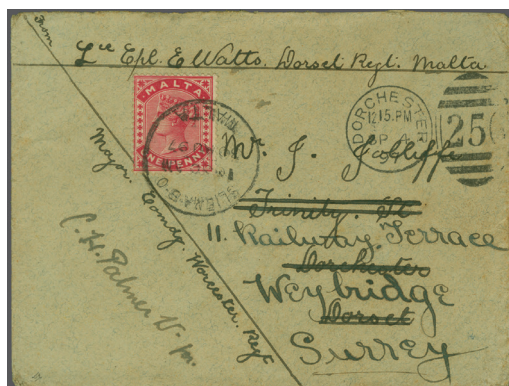 From
Lce Cpl. E Watts. Dorset Regt. Malta
MALTA
ONE PENNY
DORCHESTER
12 15.PM
SP 4
250
Mr. J. Jolliffe
Trinity. St
11. Railway Terrace
Dorchester
Weybridge
Dorset
Surrey
Comdg. Worcester. Regt
C. H. Palmer